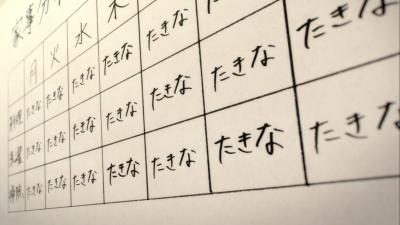 家事分
月 火 水 木
料理 たきな たきな たきな たきな たきな たきな たきな
洗濯 たきな たきな たきな たきな たきな たきな たきな
掃除 たきな たきな たきな たきな たきな たきな たきな